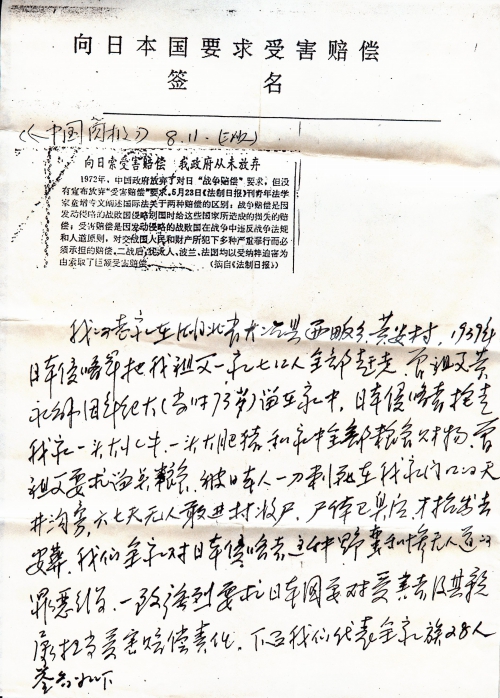 向日本国要求受害赔偿
签 名
《中国商报》 8.11.
向日索受害赔偿 我政府从未放弃
1972年，中国政府放弃了对日“战争赔偿”要求，但没
有宣布放弃“受害赔偿”要求。5月23日《法制日报》刊青年法学
家童增专文阐述国际法关于两种赔偿的区别：战争赔偿是因
发动侵略的战败国侵略别国时给这些国家所造成的损失的赔
偿；受害赔偿是因发动侵略的战败国在战争中违反战争法规
和人道原则，对交战国人民和财产所犯下多种严重罪行而必
须承担的赔偿。二战后，犹太人、波兰、法国均以受纳粹迫害为
由索取了巨额受害赔偿。 （摘自《法制日报》）
我家在湖北省大冶县西畈乡黄安村，1939年
日本侵略军把我祖父一家七口人全部赶走，曾祖父黄
因年纪大（当时73岁）留在家中，日本侵略者抢走
我家一头大水牛、一头大肥猪和家中全部粮食财物，曾
祖父要求留点粮食，被日本人一刀刺死在我家门口天
井沟旁，六七天无人敢进村收尸，尸体已臭后，才抬出去
安葬，我们全家对日本侵略者这种野蛮和惨无人道的
罪恶行径，一致强烈要求日本国要对受害者及其亲
属担当受害赔偿责任，下面我们代表全家族28人
签名如下